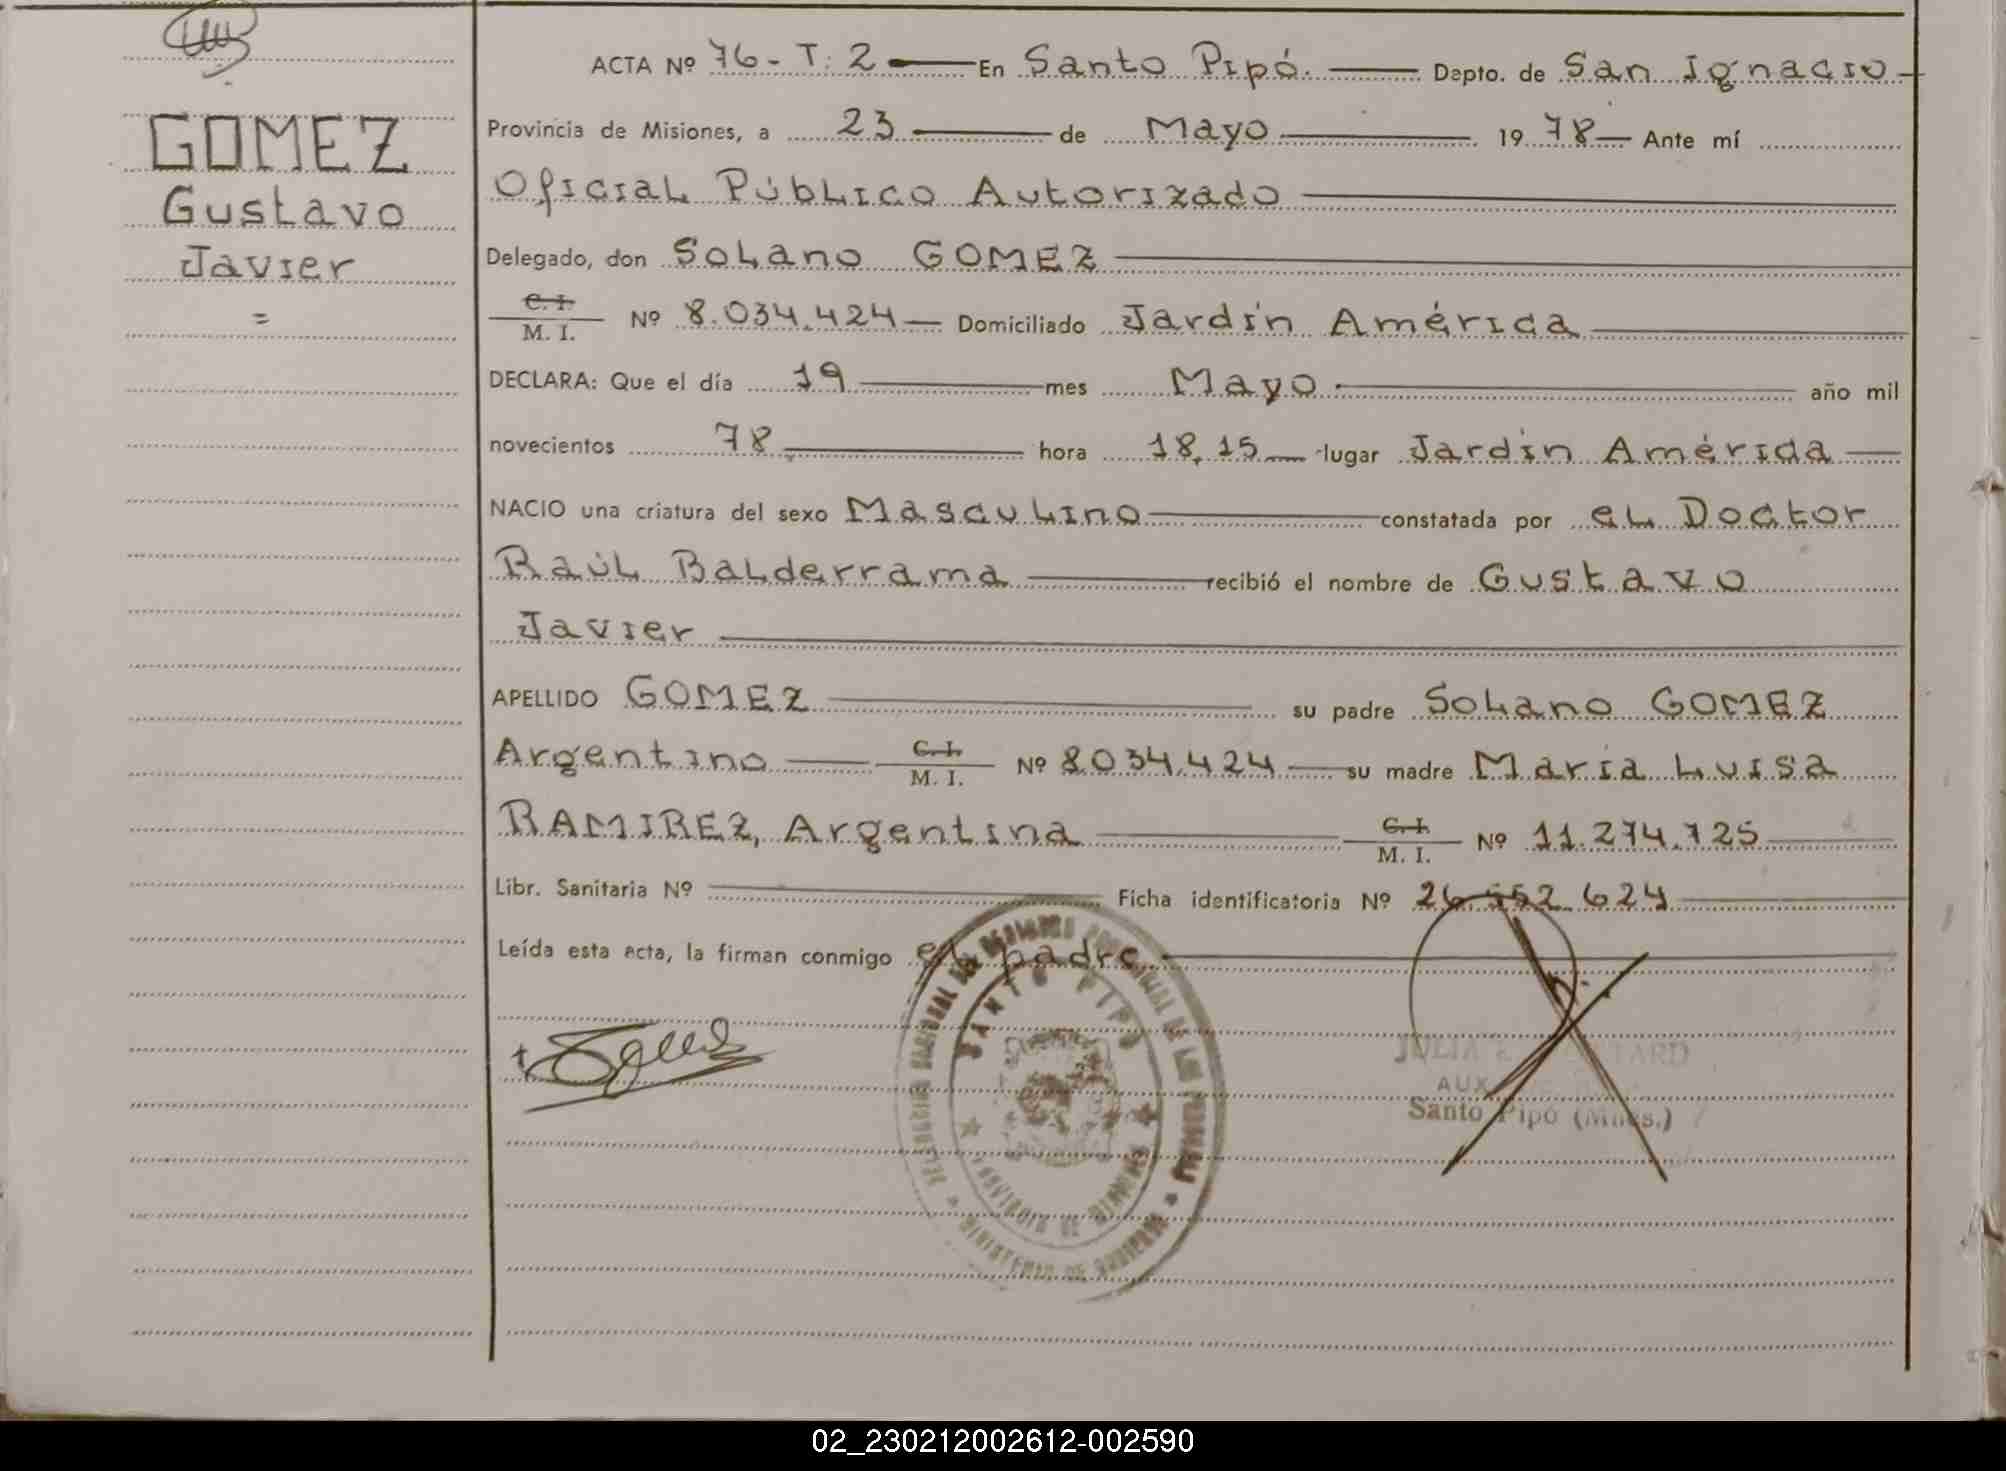 ACTA Nº 76 - T: 2 En Santo Pipó. Depto. de San Ignacio
GOMEZ
Gustavo
Javier
=
Provincia de Misiones, a 23 de Mayo 1978 Ante mí
Oficial Público Autorizado
Delegado, don Solano GOMEZ
C. I.
M. I. Nº 8.034.424 Domiciliado Jardín América
DECLARA: Que el día 19 mes Mayo año mil
novecientos 78 hora 18,15 lugar Jardín América
NACIO una criatura del sexo Masculino constatada por el Doctor
Raúl Balderrama recibió el nombre de Gustavo
Javier
APELLIDO GOMEZ su padre Solano GOMEZ
Argentino C. I.
M. I. Nº 8.034.424 su madre María Luisa
RAMIREZ, Argentina C. I.
M. I. Nº 11.274.725
Libr. Sanitaria Nº Ficha identificatoria Nº 26.552.624
Leída esta acta, la firman conmigo el padre.
SANTO PIPO
PROVINCIA DE MISIONES
MINISTERIO DE GOBIERNO
JULIA
AUX
Santo Pipó (Mnes.)
02_230212002612-002590